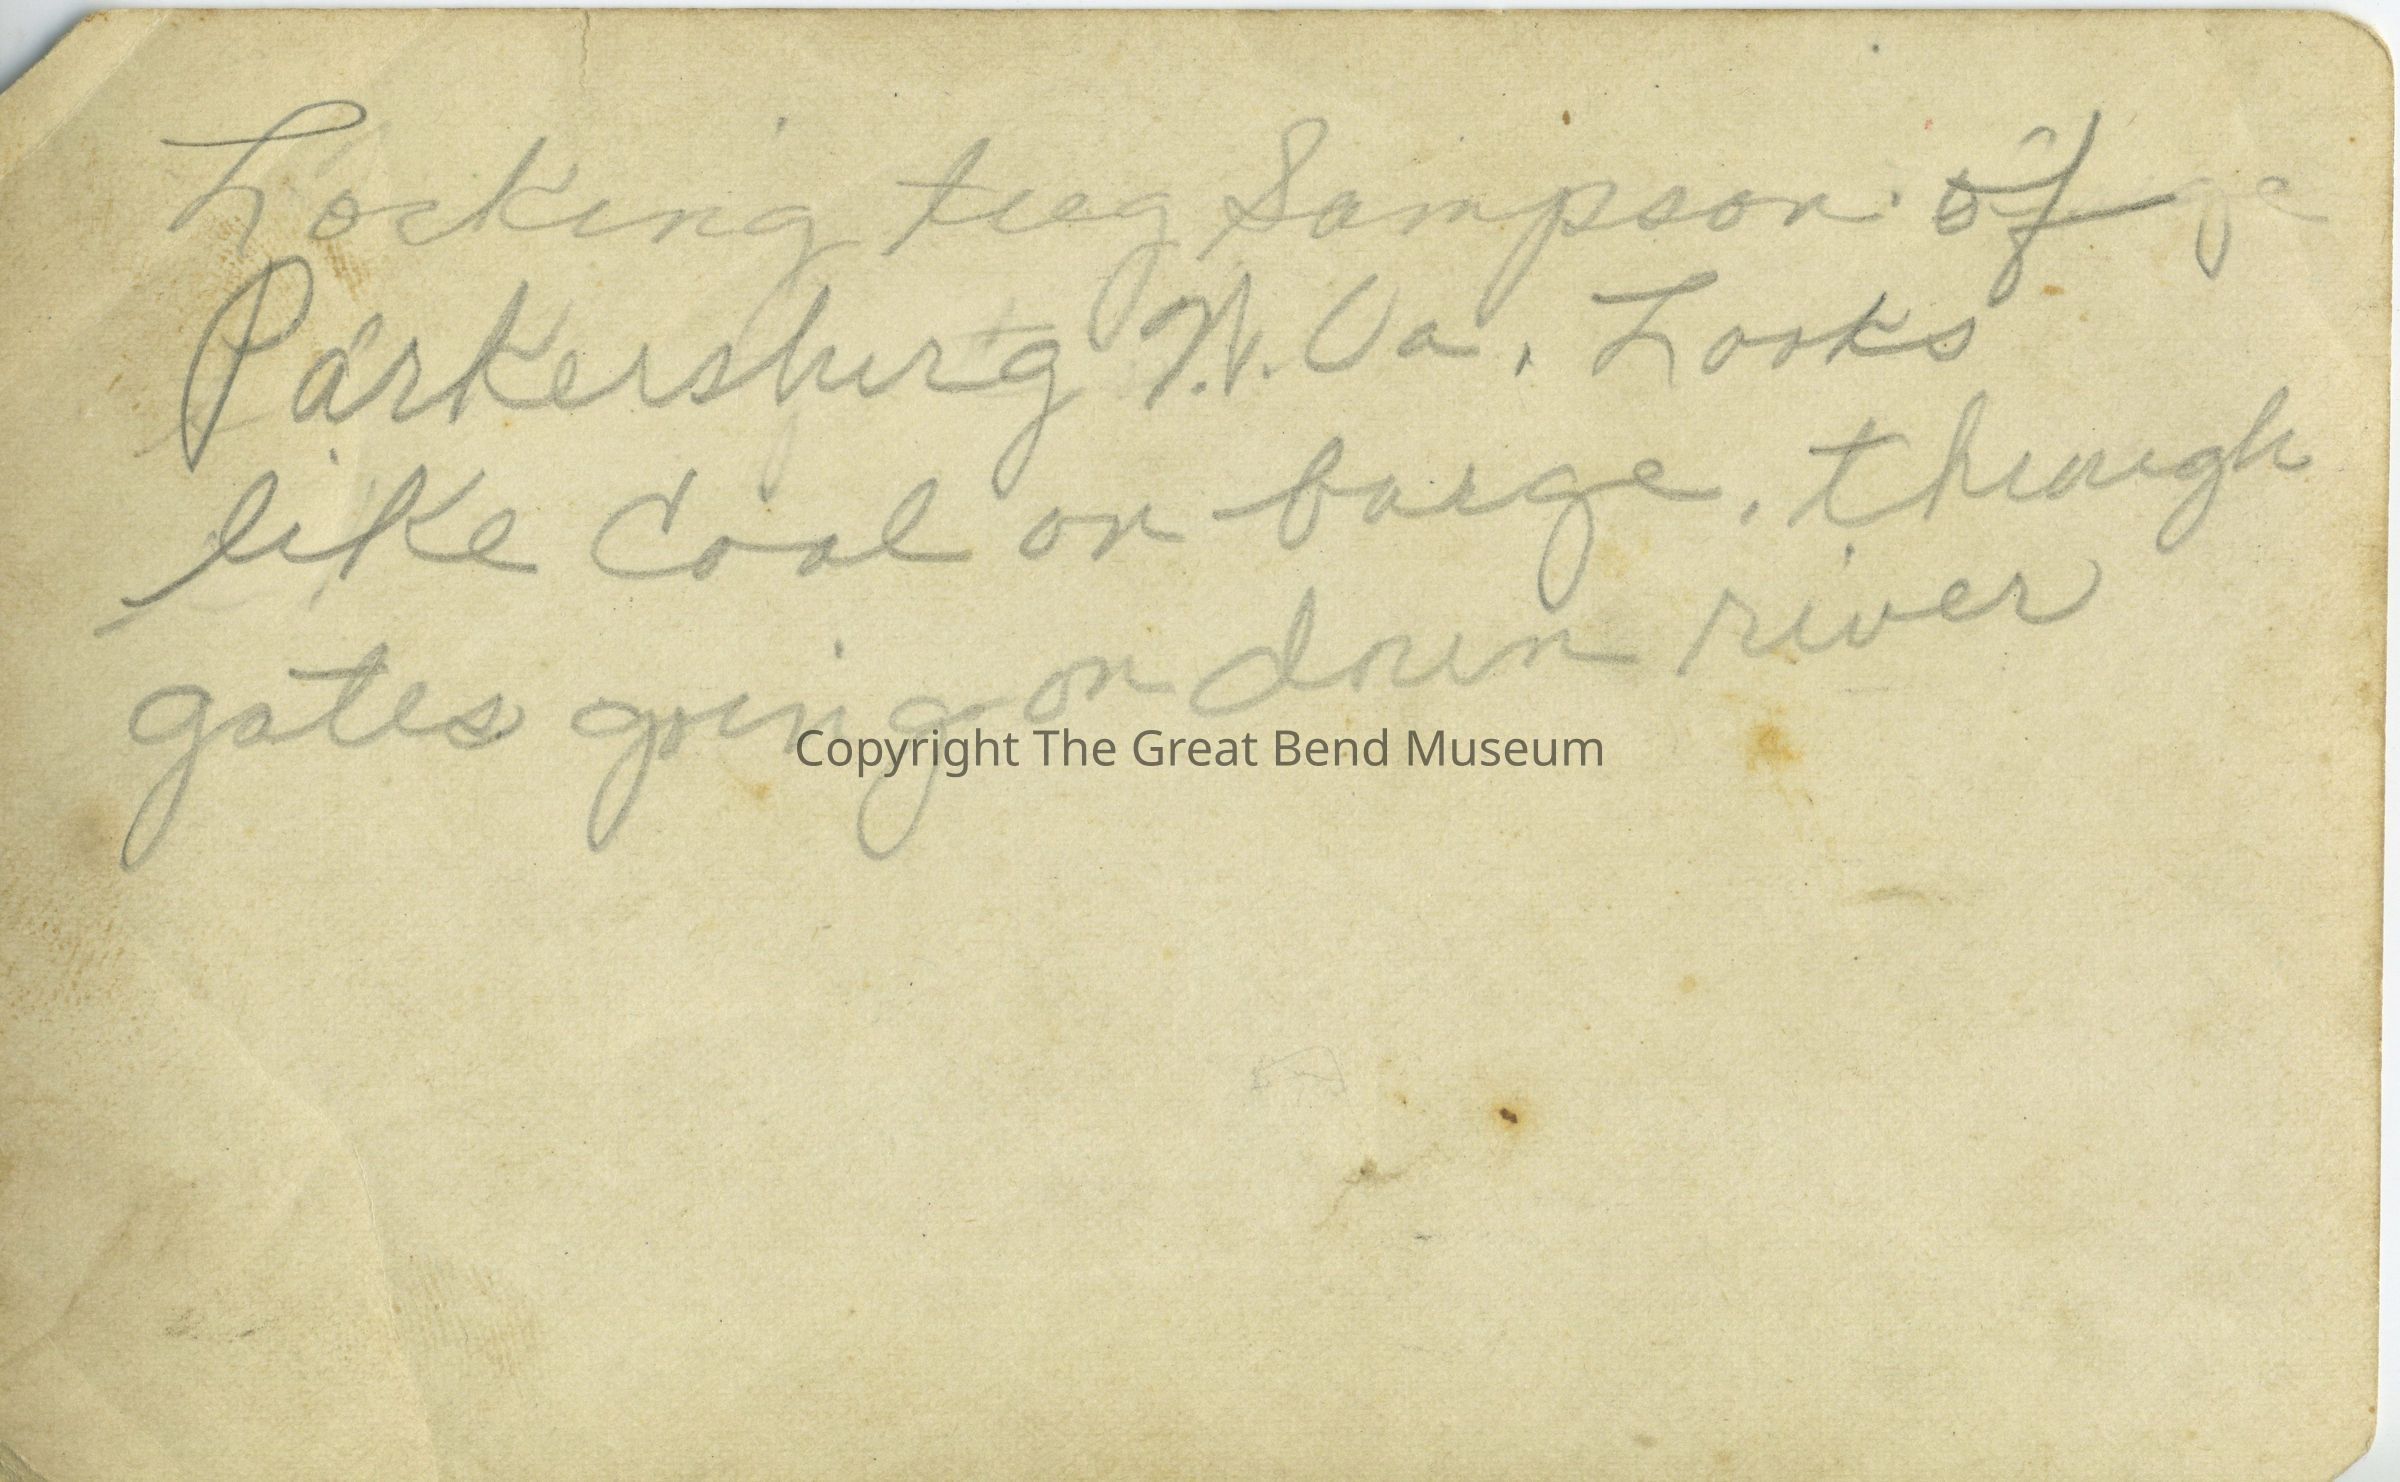 Locking tug Sampson. of
Parkersburg W. Va. Looks
like Coal on barge, through
gates going on down river
Copyright The Great Bend Museum